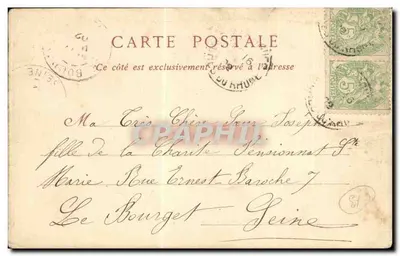 CARTE POSTALE
Ce côté est exclusivement réservé à l'adresse
Ma Très Chère Sœur Joseph
fille de la Charité Pensionnat Ste
Marie Rue Ernest Baroche 7
Le Bourget Seine
DU RHONE
5
5